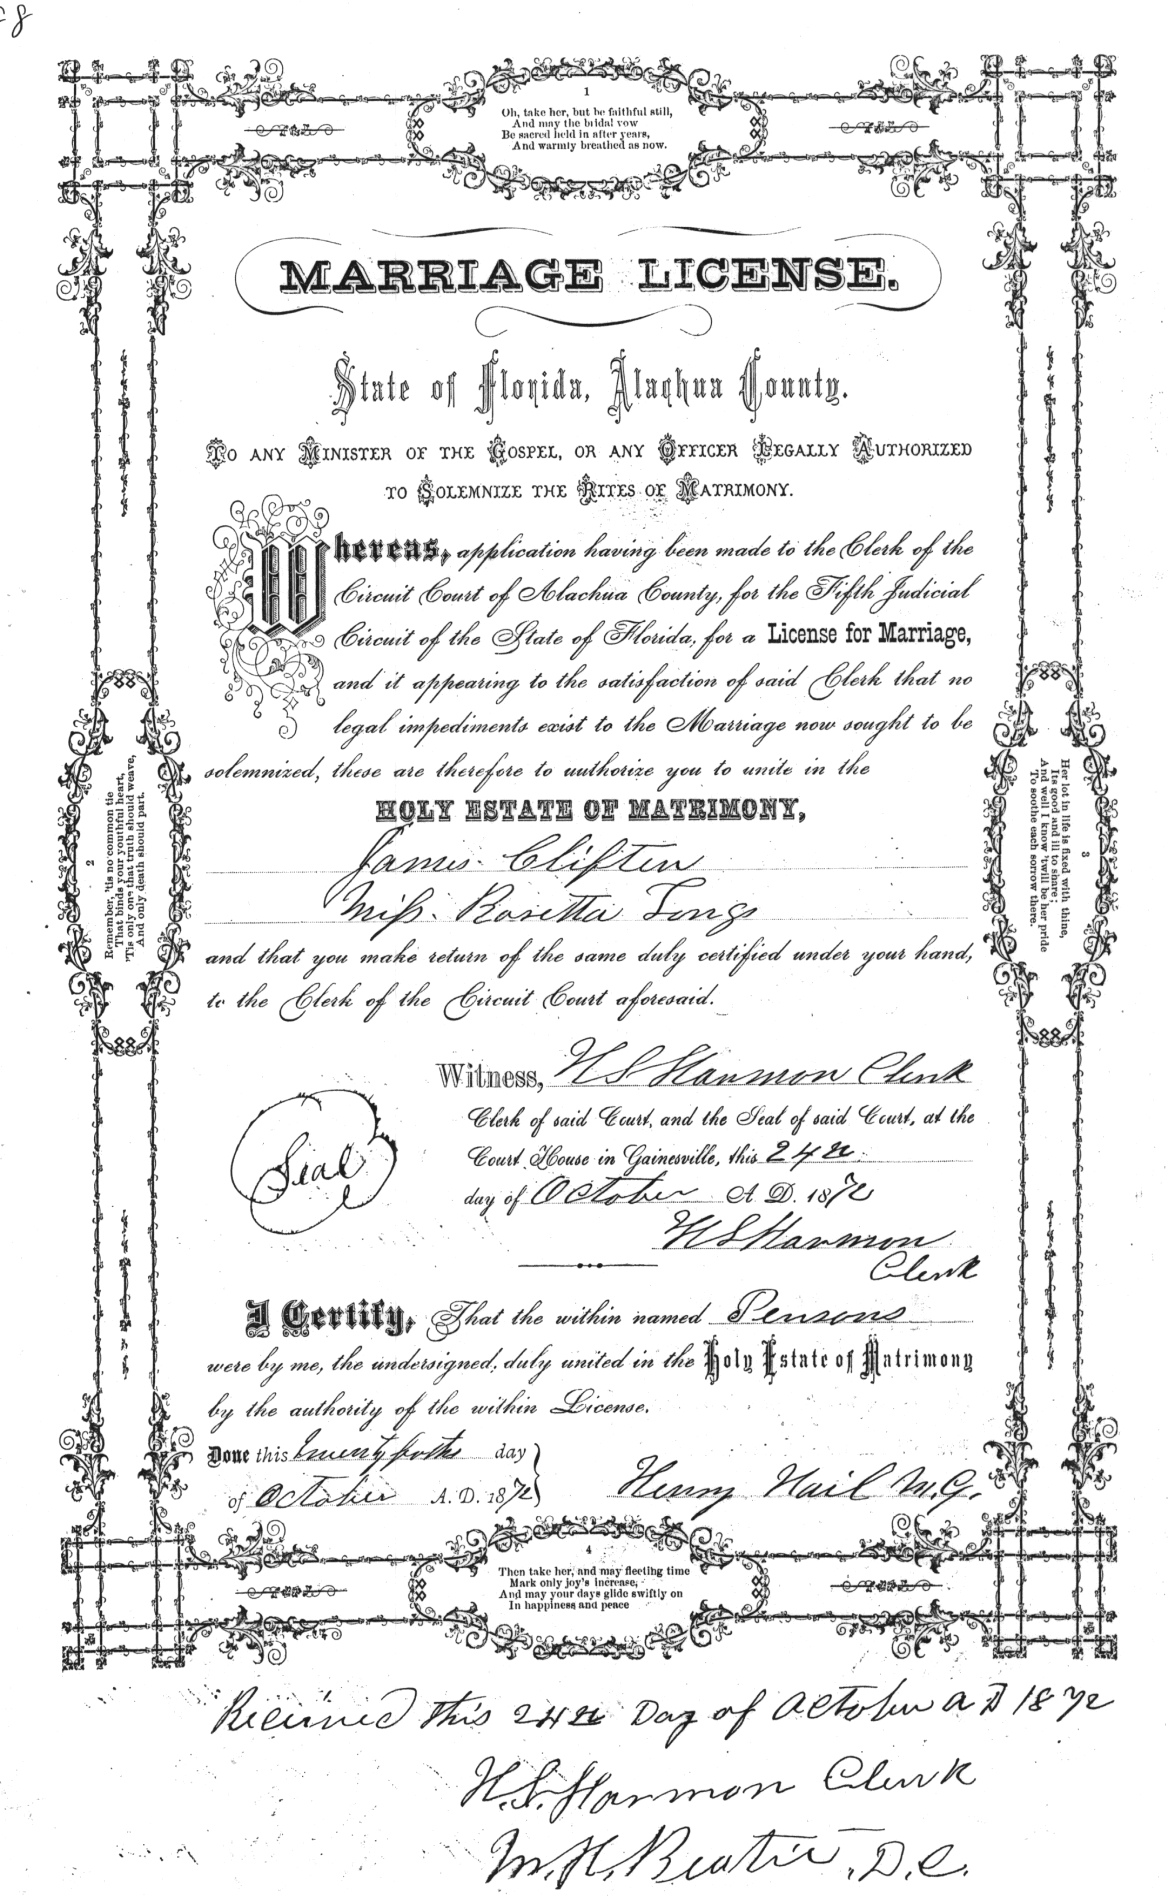 1
Oh, take her, but be faithful still,
And may the bridal vow
Be sacred held in after years,
And warmly breathed as now.
MARRIAGE LICENSE.
State of Florida, Alachua County.
TO ANY MINISTER OF THE GOSPEL, OR ANY OFFICER LEGALLY AUTHORIZED
TO SOLEMNIZE THE RITES OF MATRIMONY.
Whereas, application having been made to the Clerk of the
Circuit Court of Alachua County, for the Fifth Judicial
Circuit of the State of Florida, for a License for Marriage,
and it appearing to the satisfaction of said Clerk that no
legal impediments exist to the Marriage now sought to be
solemnized, these are therefore to authorize you to unite in the
HOLY ESTATE OF MATRIMONY,
James Cliften
Miss. Rosetta Longs
and that you make return of the same duly certified under your hand,
to the Clerk of the Circuit Court aforesaid.
2
Remember, 'tis no common tie
That binds your youthful heart,
'Tis only one that truth should weave,
And only death should part.
3
Her lot in life is fixed with thine,
Its good and ill to share;
And well I know 'twill be her pride
To soothe each sorrow there.
Witness, H S Harmon Clerk
Clerk of said Court, and the Seal of said Court, at the
Court House in Gainesville, this 24th
day of October A. D. 1872
Seal
H S Harmon
Clerk
I Certify, That the within named Persons
were by me, the undersigned, duly united in the Holy Estate of Matrimony
by the authority of the within License.
Done this day
of October A. D. 1872
Henry Hail M.G.
4
Then take her, and may fleeting time
Mark only joy's increase,
And may your days glide swiftly on
In happiness and peace
Received this 24th Day of October A D 1872
H. S. Harmon Clerk
M. H. Beatie, D. C.